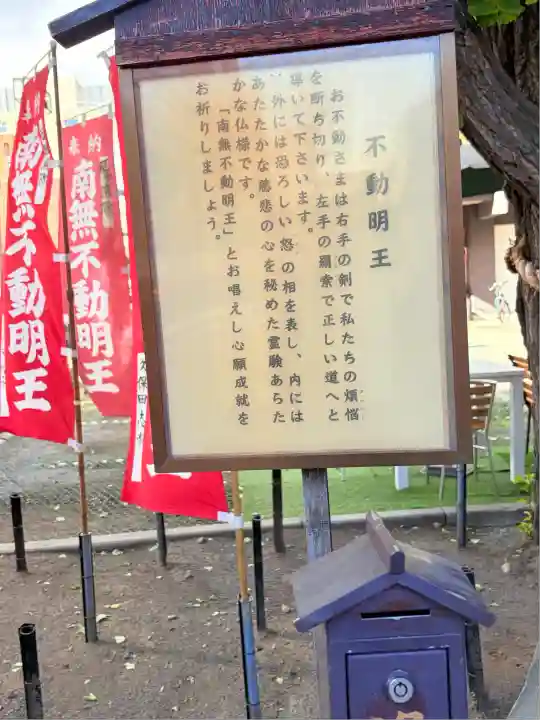 不動明王
お不動さまは右手の剣で私たちの煩悩
を断ち切り、左手の羂索で正しい道へと
導いて下さいます。
外には恐ろしい怒の相を表し、内には
あたたかな慈悲の心を秘めた霊験あらた
かな仏様です。
「南無不動明王」とお唱えし心願成就を
お祈りしましょう。
奉納
南無不動明王
奉納
南無不動明王